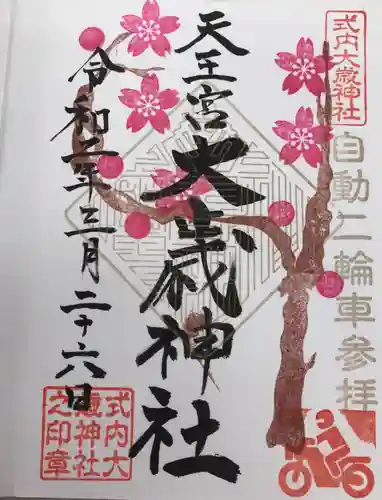 式内大歳神社
自動二輪車参拝
天王宮
大歳神社
令和二年三月二十六日
式内大
歳神社
之印章